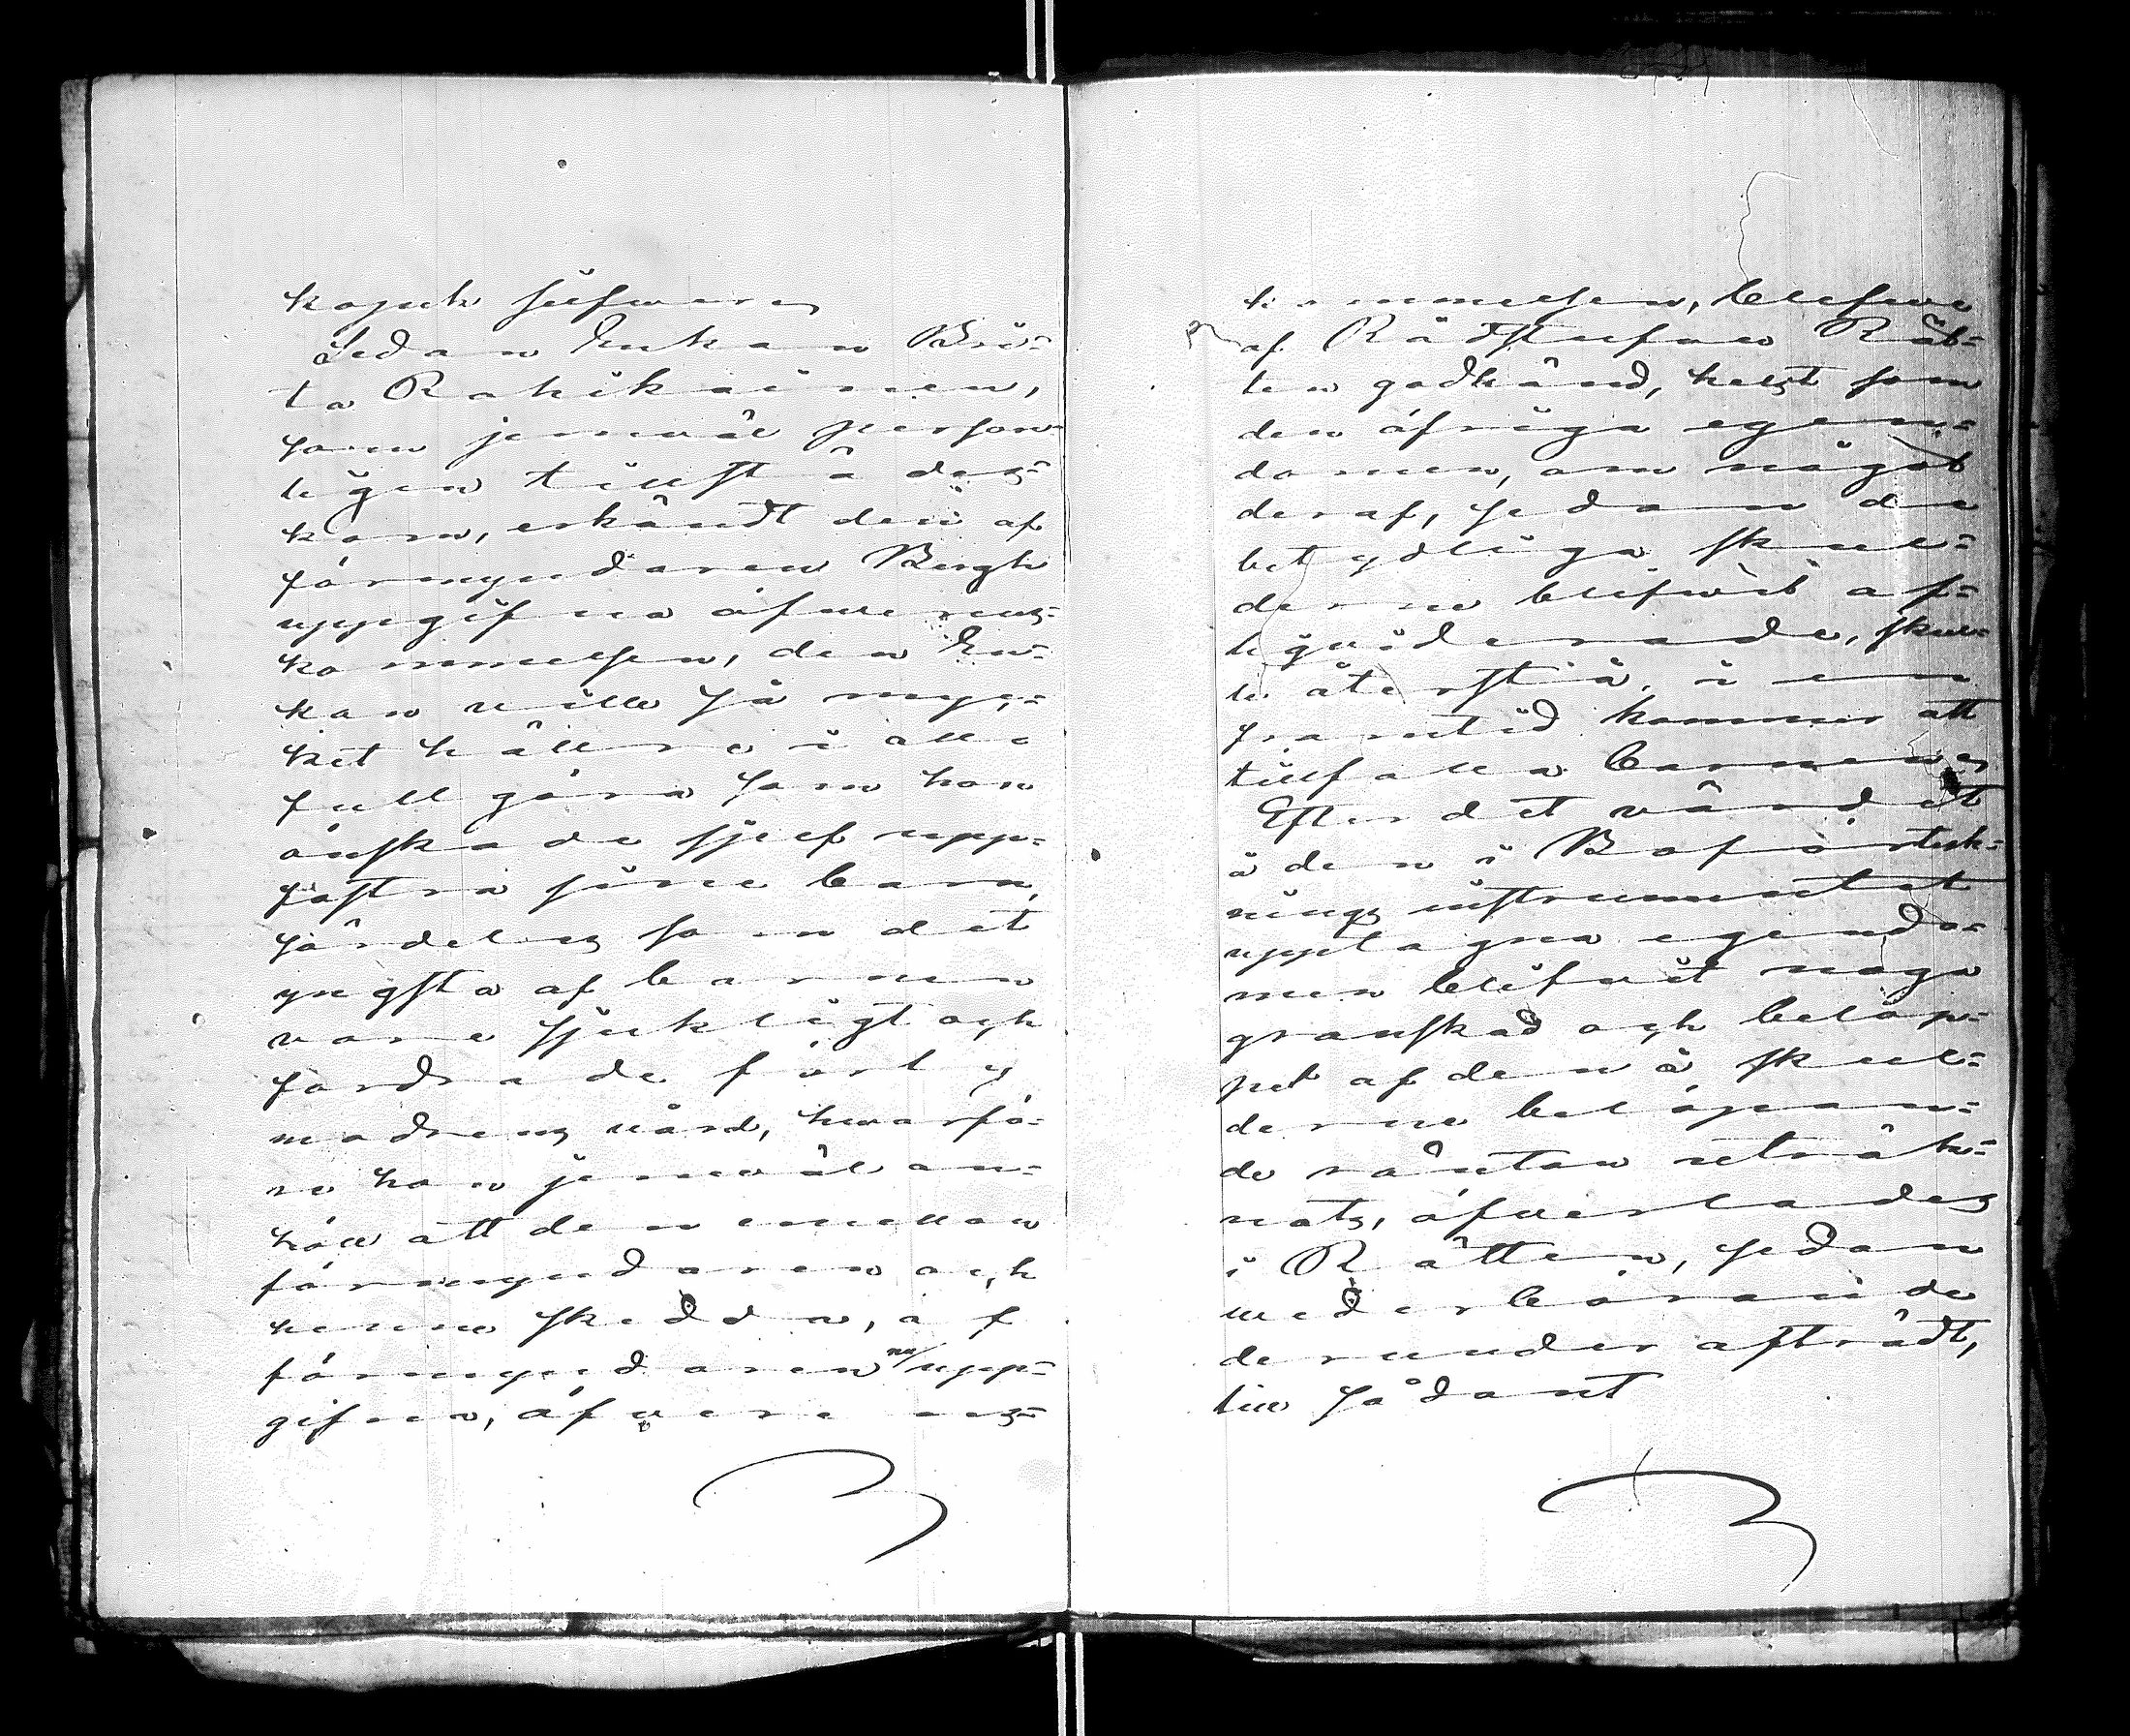 kopek silfver.
Sedan Enkan Bri-
ta Rahikainen,
som jemväl person-
ligen tillstädes-
kom, erkändt den af
förmyndaren Bergh
uppgifna öfverens-
kommelsen, den En-
kan ville så myc-
ket hällre i allo
fullgöra som hon
önskade sjelf upp-
fostra sine barn,
särdeles som det
yngsta af barnen
vore sjukligt och
fordrade först
modrens vård, hvarfö-
re hon jemväl an-
höll att den emellan
förmyndaren och
henne skedda, af
förmyndaren nu upp-
gifna, öfverens-
kommelsen, blefve
af Rådstufvu Rät-
ten godkänd, helst som
den öfriga egen-
domen, om något
deraf, sedan de
betydliga skul-
derne blifvit af-
liqviderade, skul-
le återstå, i en
framtid kommer att
tillfalla barnen.
Efter det värdet
å den i Boförteck-
nings instrumentet
upptagna egendo-
men blifvit noga
granskad och belop-
pet af den å skul-
derne belöpan-
de räntan uträk-
nats, öfverlades
i Rätten, sedan
vederbörande
derunder afträdt,
till sådant